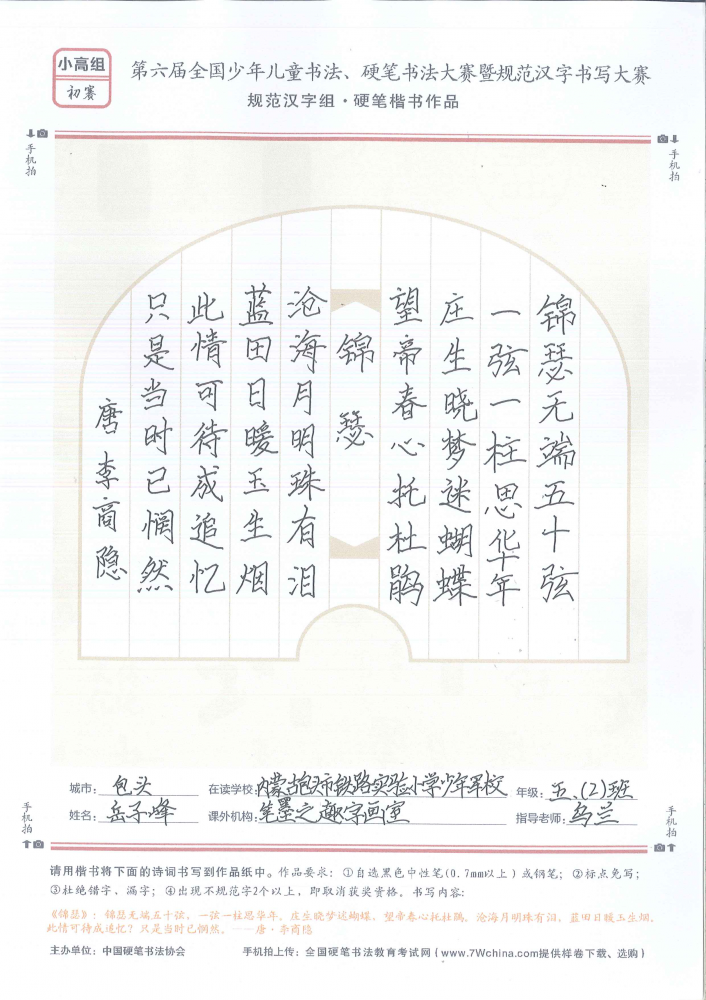 小高组
初赛
第六届全国少年儿童书法、硬笔书法大赛暨规范汉字书写大赛
规范汉字组·硬笔楷书作品
手机拍
手机拍
锦瑟无端五十弦
一弦一柱思华年
庄生晓梦迷蝴蝶
望帝春心托杜鹃
锦瑟
沧海月明珠有泪
蓝田日暖玉生烟
此情可待成追忆
只是当时已惘然
唐李商隐
城市：包头 在读学校：内蒙古包头市铁路实验小学少年军校 年级：五、(2)班
姓名：岳子峰 课外机构：笔墨之趣字画室 指导老师：乌兰
手机拍
手机拍
请用楷书将下面的诗词书写到作品纸中。作品要求：①自选黑色中性笔(0.7mm以上)或钢笔；②标点免写；
③杜绝错字、漏字；④出现不规范字2个以上，即取消获奖资格。书写内容：
《锦瑟》：锦瑟无端五十弦，一弦一柱思华年。庄生晓梦迷蝴蝶，望帝春心托杜鹃。沧海月明珠有泪，蓝田日暖玉生烟。
此情可待成追忆？只是当时已惘然。——唐·李商隐
主办单位：中国硬笔书法协会 手机拍上传：全国硬笔书法教育考试网（www.7Wchina.com提供样卷下载、选购）